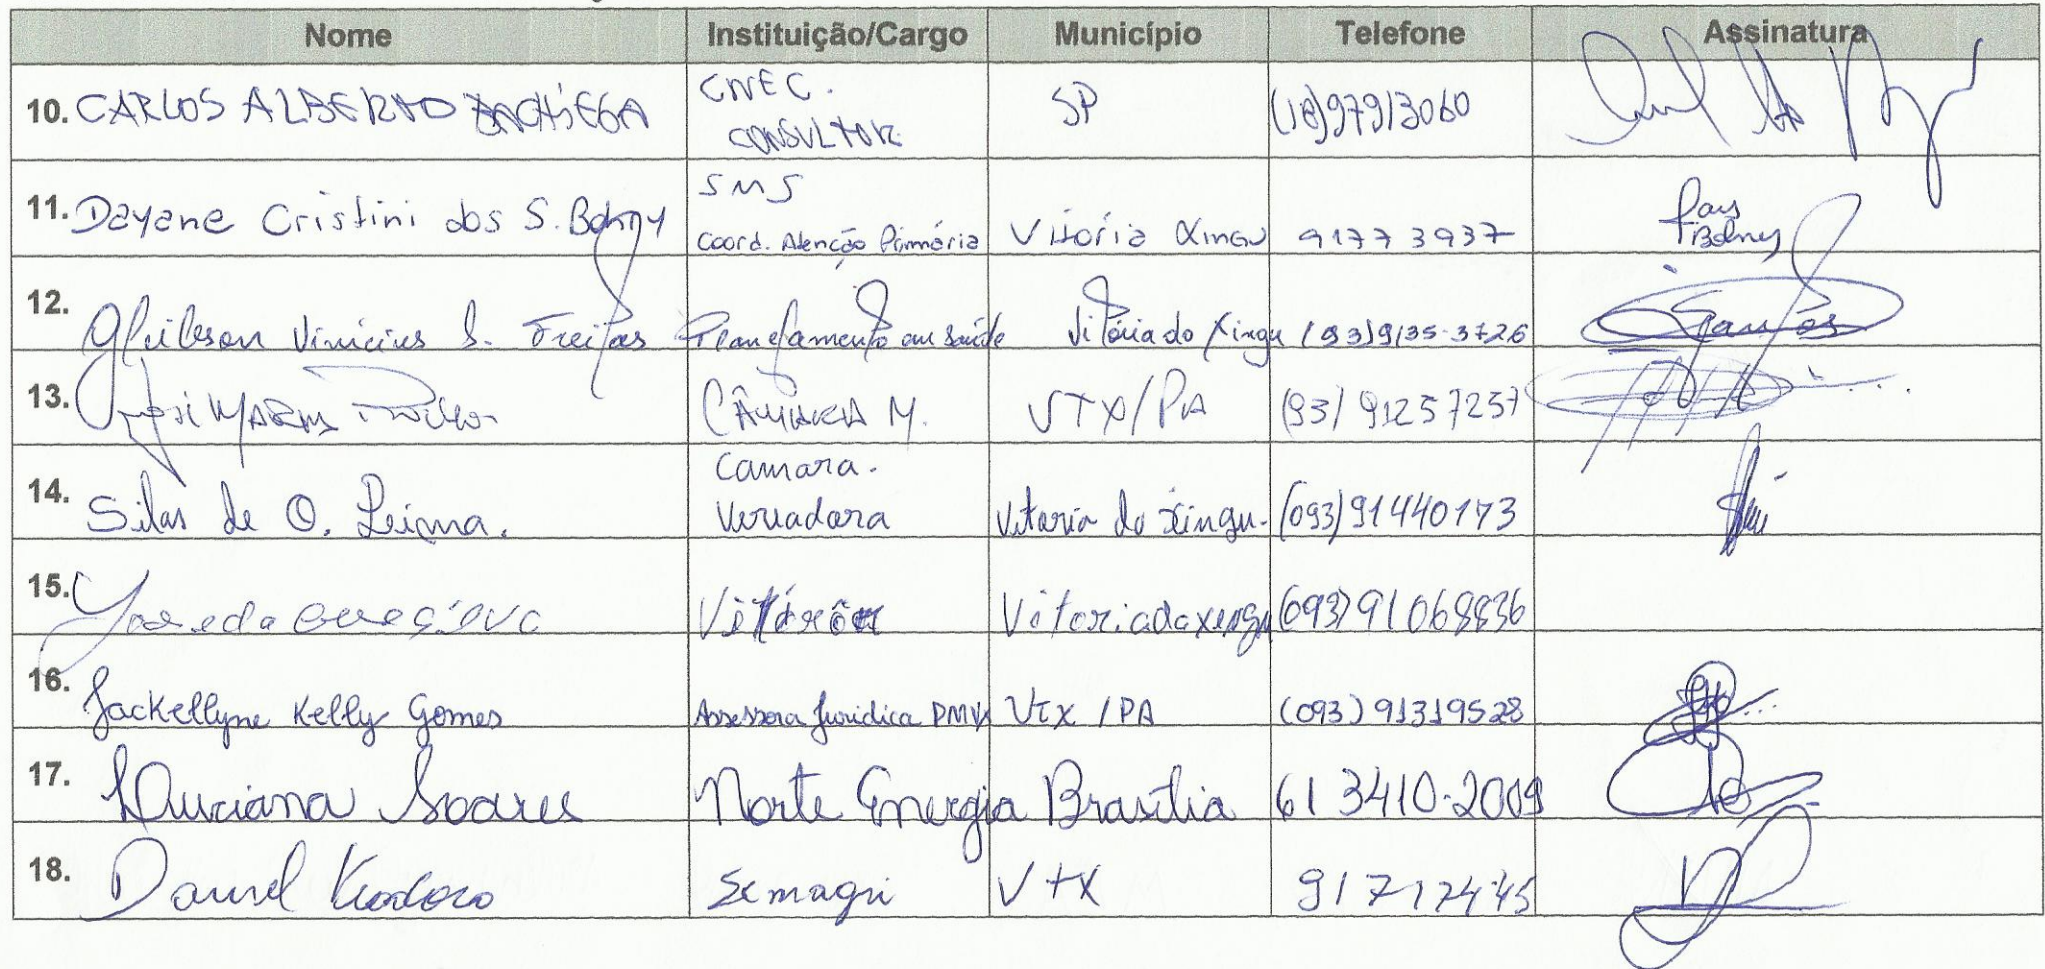 Nome Instituição/Cargo Município Telefone Assinatura
10. CARLOS ALBERTO CNEC. CONSULTOR SP (18)97913060
11. Dayane Cristini dos S. SMS Coord. Atenção Primária Vitória Xingu 9177 3937
12. Gleibson Vinicius S. Freitas Planejamento em saúde Vitória do Xingu (93)9135-3726
13. CÂMARA M. VTX/PA (93) 91257257
14. Silas de O. Camara. Vereadora Vitoria do Xingu. (093)91440173
15. Vitoriadoxingu (093)91068836
16. Jackellyne Kelly Gomes Assessora Jurídica PMVX VTX /PA (093) 91319528
17. Luciana Soares Norte Energia Brasília 61 3410-2009
18. Daniel Semagri VTX 91717445